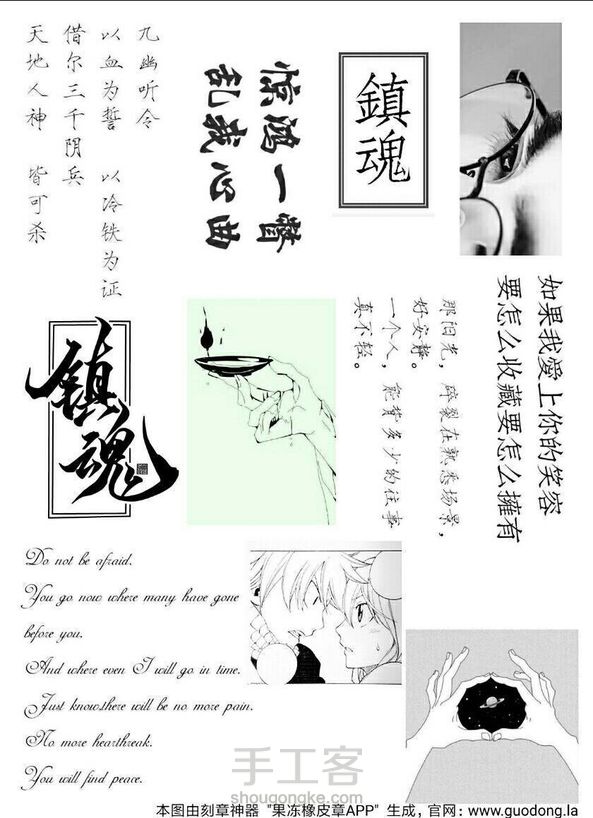 九幽听令
以血为誓 以冷铁为证
借尔三千阴兵
天地人神 皆可杀
惊鸿一瞥
乱我心曲
鎮魂
如果我愛上你的笑容
要怎么收藏要怎么擁有
那阳光，碎裂在熟悉场景，
好安静。
一个人，能背多少的往事
真不轻。
鎮魂
Do not be afraid.
You go now where many have gone
before you.
And where even I will go in time.
Just know,there will be no more pain.
No more heartbreak.
You will find peace.
手工客
shougongke.com
本图由刻章神器 "果冻橡皮章APP" 生成，官网：www.guodong.la